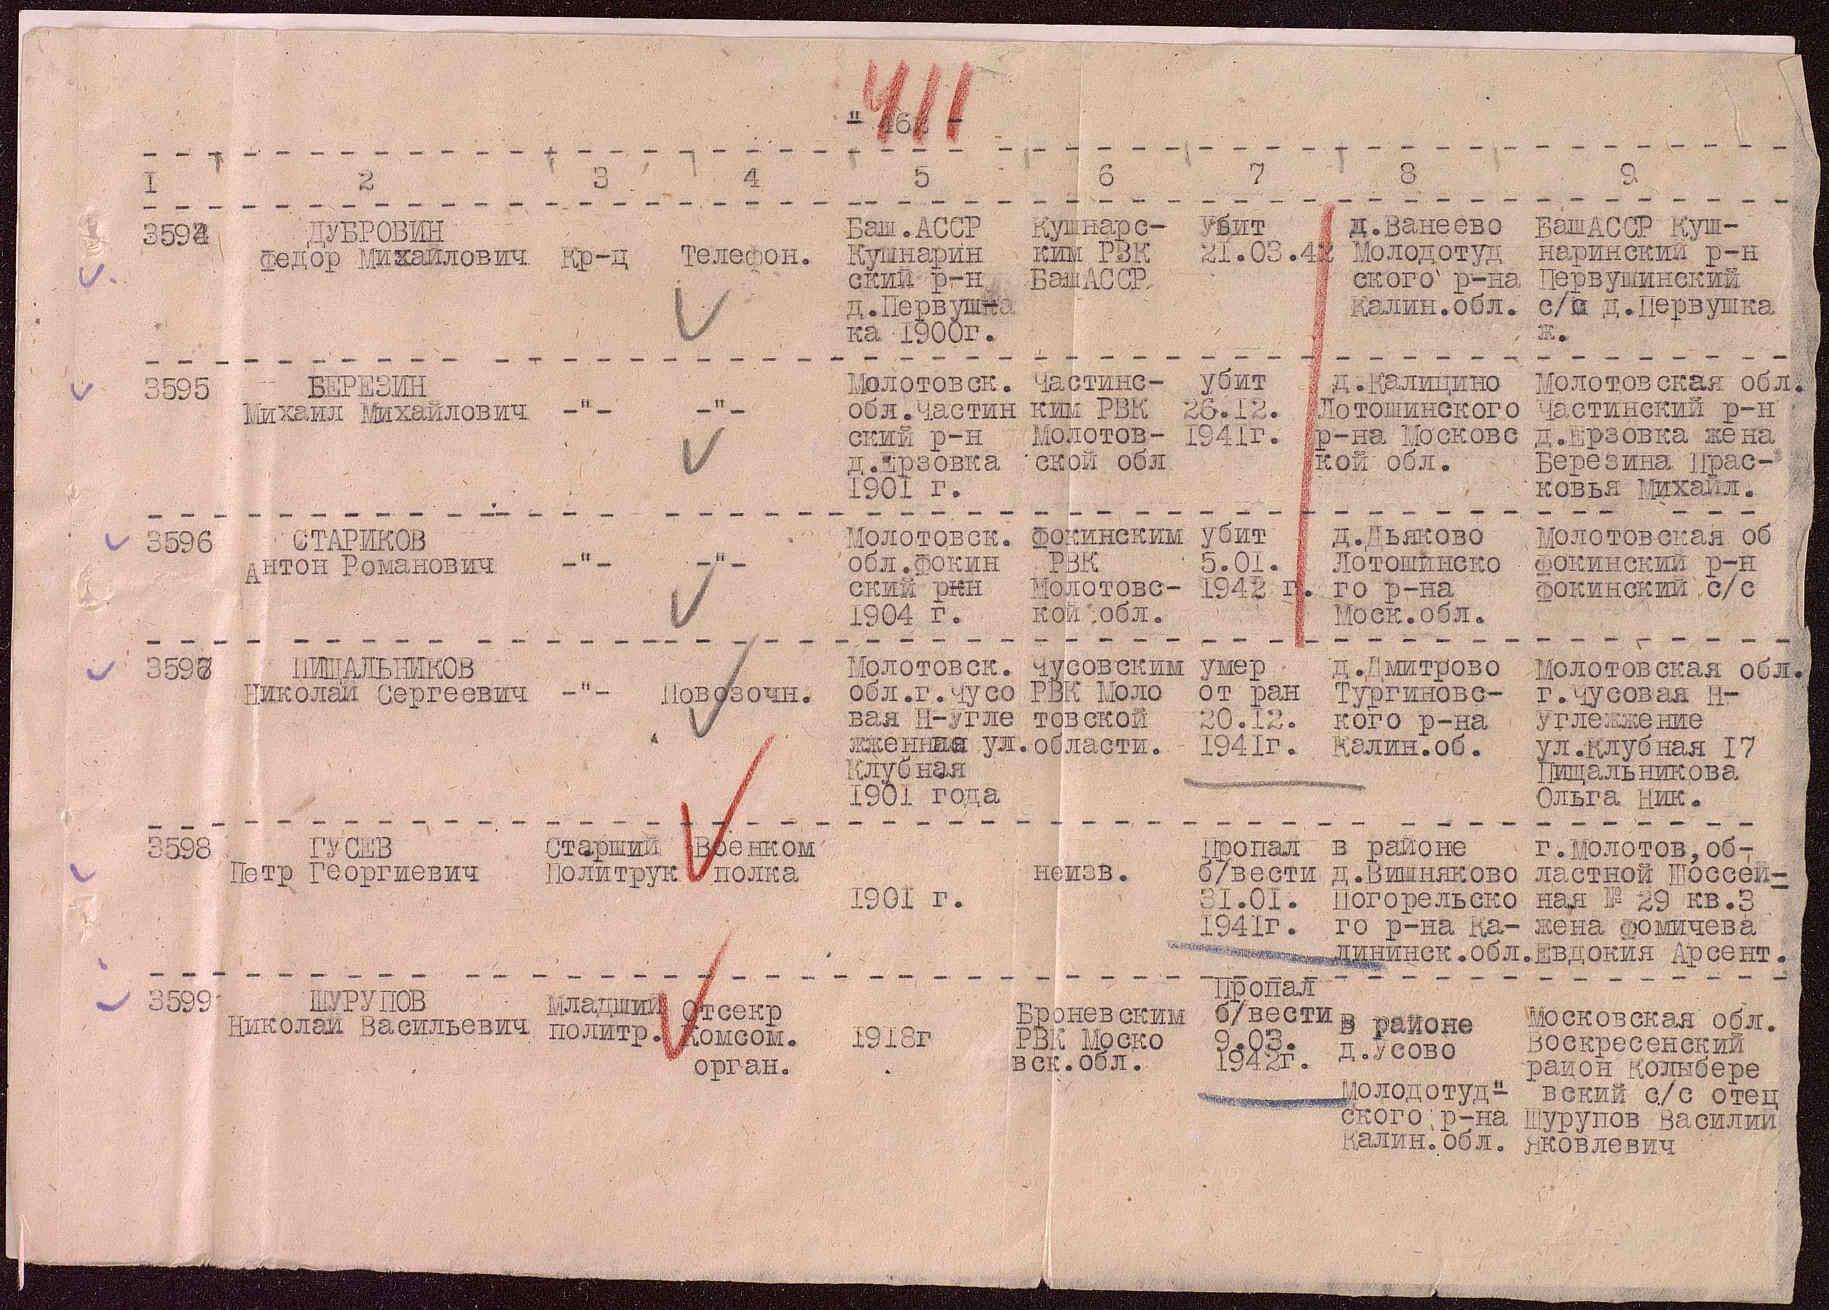 411
I 2 3 4 5 6 7 8 9
3594 ДУБРОВИН
Федор Михайлович Кр-ц Телефон.
Баш.АССР
Кушнарин
ский р-н
д.Первушка
ка 1900г.
Кушнарс-
ким РВК
БашАССР
Убит
21.03.42
д.Ванеево
Молодотуд
ского р-на
Калин.обл.
БашАССР Куш-
наринский р-н
Первушинский
с/с д.Первушка
ж.
3595 БЕРЕЗИН
Михаил Михайлович -"- -"-
Молотовск.
обл.Частин
ский р-н
д.Ерзовка
1901 г.
Частинс-
ким РВК
Молотов-
ской обл
убит
26.12.
1941г.
д.Калицино
Лотошинского
р-на Московс
кой обл.
Молотовская обл.
Частинский р-н
д.Ерзовка жена
Березина Прас-
ковья Михайл.
3596 СТАРИКОВ
Антон Романович -"- -"-
Молотовск.
обл.Фокин
ский ркн
1904 г.
Фокинским
РВК
Молотовс-
кой обл.
убит
5.01.
1942 г.
д.Дьяково
Лотошинско
го р-на
Моск.обл.
Молотовская об
Фокинский р-н
Фокинский с/с
3597 ПИЩАЛЬНИКОВ
Николай Сергеевич -"- Повозочн.
Молотовск.
обл.г.Чусо
вая Н-Угле
жженная ул.
Клубная
1901 года
Чусовским
РВК Моло
товской
области.
умер
от ран
20.12.
1941г.
д.Дмитрово
Тургиновс-
кого р-на
Калин.об.
Молотовская обл.
г.Чусовая Н-
Углежжение
ул.Клубная 17
Пищальникова
Ольга Ник.
3598 ГУСЕВ
Петр Георгиевич
Старший
Политрук
Военком
полка
1901 г.
неизв.
Пропал
б/вести
31.01.
1941г.
в районе
д.Вишняково
Погорельско
го р-на Ка-
лининск.обл.
г.Молотов,об-
ластной Шоссей-
ная № 29 кв.3
жена Фомичева
Евдокия Арсент.
3599 ШУРУПОВ
Николай Васильевич
Младший
политр.
Отсекр
Комсом.
орган.
1918г
Броневским
РВК Моско
вск.обл.
Пропал
б/вести
9.03.
1942г.
в районе
д.Усово
Молодотуд-
ского р-на
Калин.обл.
Московская обл.
Воскресенский
район Колыбере
вский с/с отец
Шурупов Василий
Яковлевич